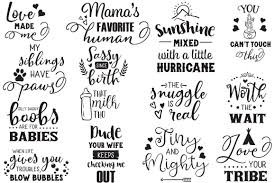 Love
MADE
me
Mama's
FAVORITE
human
Sunshine
MIXED
with a little
HURRICANE
YOU
CAN'T TOUCH
this
My
siblings
HAVE
paws
Sassy
since
BIRTH
THE
snuggle
is real
Worth
THE
WAIT
SILLY DADDY
boobs
ARE FOR
BABIES
THAT
milk
THO
WHEN LIFE
gives you
TROUBLES
BLOW BUBBLES
Dude
YOUR WIFE
KEEPS
CHECKING ME
OUT
Tiny
and
Mighty
Love
YOUR
TRIBE